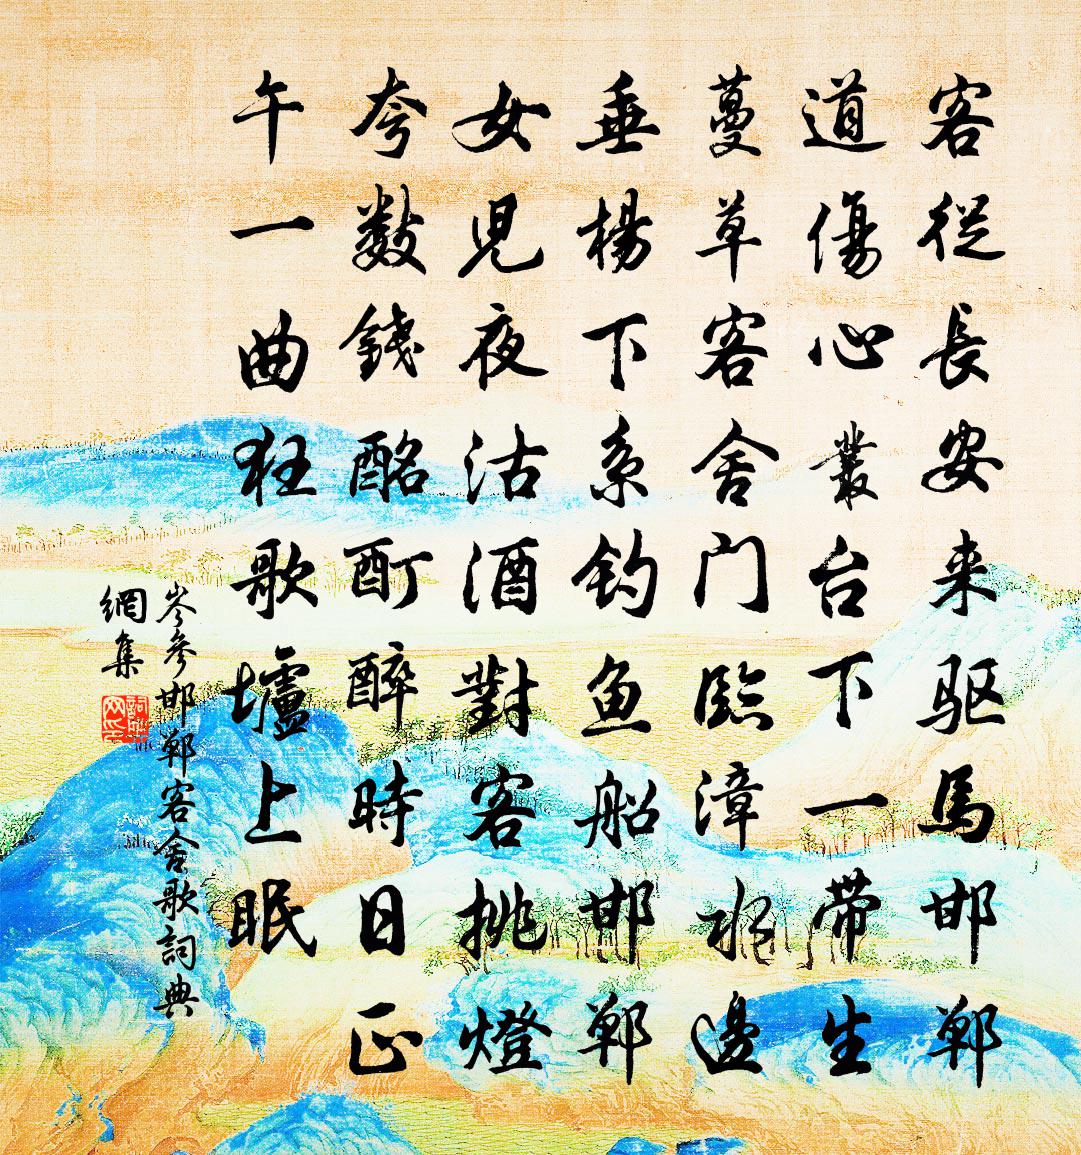 客從長安来驱馬邯郸
道傷心叢台下一带生
蔓草客舍门臨漳水邊
垂楊下系钓鱼船邯郸
女児夜沽酒對客挑燈
夸数錢酩酊醉時日正
午一曲狂歌壚上眠
岑參邯郸客舍歌詞典
網集